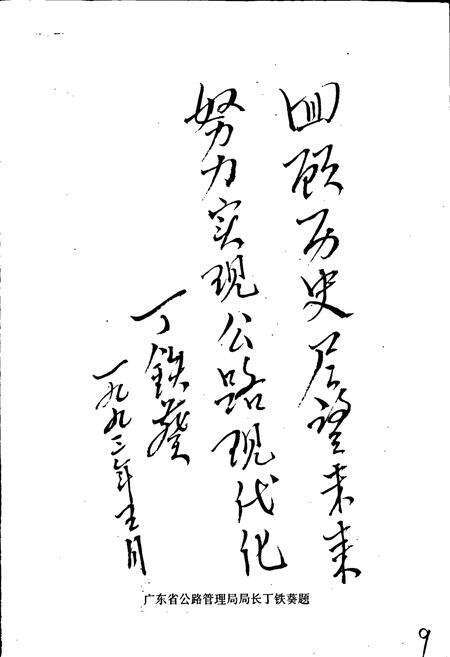 回顾历史展望未来
努力实现公路现代化
丁铁葵
一九九三年五月
广东省公路管理局局长丁铁葵题
9